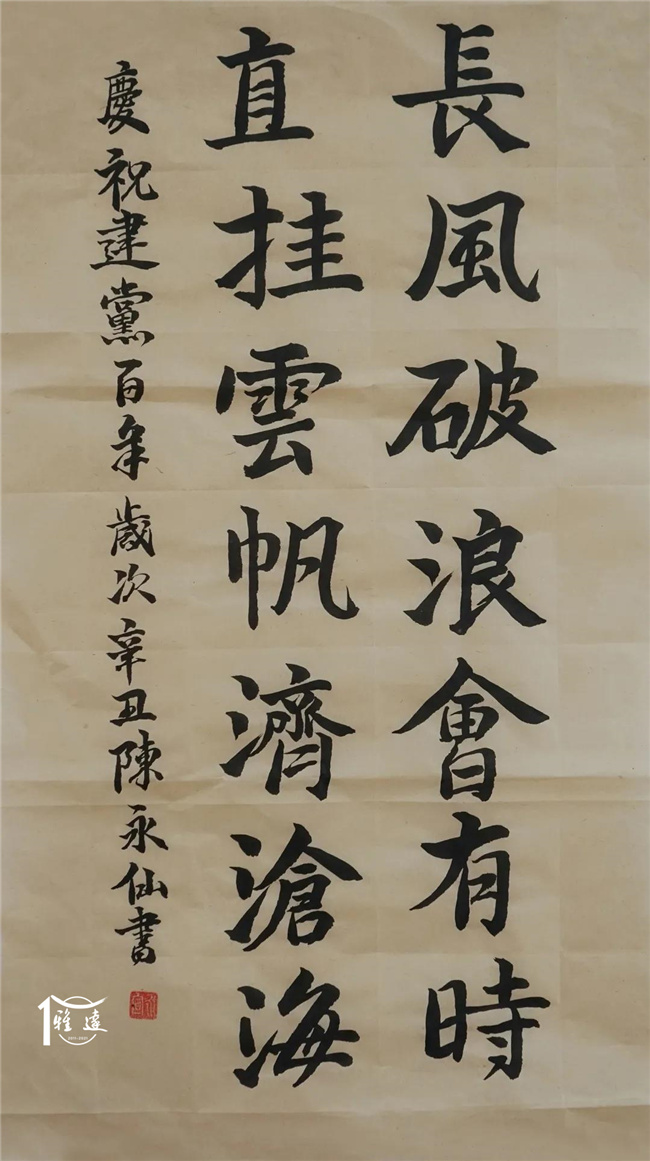 長風破浪會有時
直挂雲帆濟滄海
慶祝建黨百年 歲次辛丑陳永仙書
雅達